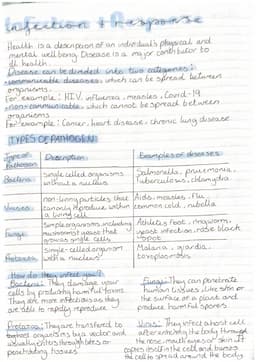 Infection & Response
Health is a description of an individual's physical and
mental well being. Disease is a major contributor to
ill health.
Disease can be divided into two categories:
communicable diseases, which can be spread between
organisms.
For example: HIV, influenza, measles, Covid-19
non-communicable, which cannot be spread between
organisms
For example: Cancer, heart disease, chronic lung disease
TYPES OF PATHOGEN
Type of Pathogen Description Examples of diseases
Bacteria single celled organisms without a nucleus Salmonella, pneumonia, Tuberculosis, chlamydia
Viruses non-living particles that can only reproduce within a living cell Aids, measles, Flu, common cold, rubella
Fungi Simple organisms, including mushrooms, yeast that grow as single cells Athlete's Foot, ringworm, yeast infection, rose black spot
Protozoa Single-celled organism with a nucleus Malaria, giardia, toxoplasmosis
How do they infect you?
Bacteria: They damage your
cells by producing harmful toxins.
They are more infectious as they
are able to rapidly reproduce
Fungi: They can penetrate
human tissues, like skin or
the surface of a plant and
produce harmful spores
Protozoa: They are transferred to
by a vector and
or
penetrating tissues
Virus: They infect a host cell
after entering the body through
the nose, mouth, eyes or skin. It
opens itself in the cell and bursts
the cell to spread around the body